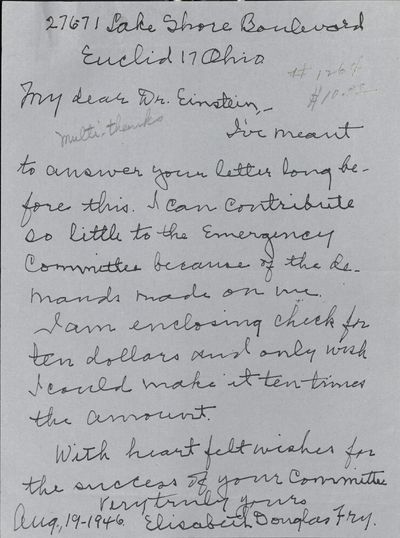 27671 Lake Shore Boulevard
Euclid 17 Ohio
# 1264
$10.00
My dear Dr. Einstein,-
multi-thanks
I've meant
to answer your letter long be-
fore this. I can contribute
so little to the Emergency
Committee because of the de-
mands made on me.
I am enclosing check for
ten dollars and only wish
I could make it ten times
the amount.
With heart felt wishes for
the success of your Committee
Very truly yours
Aug, 19-1946. Elisabeth Douglas Fry.